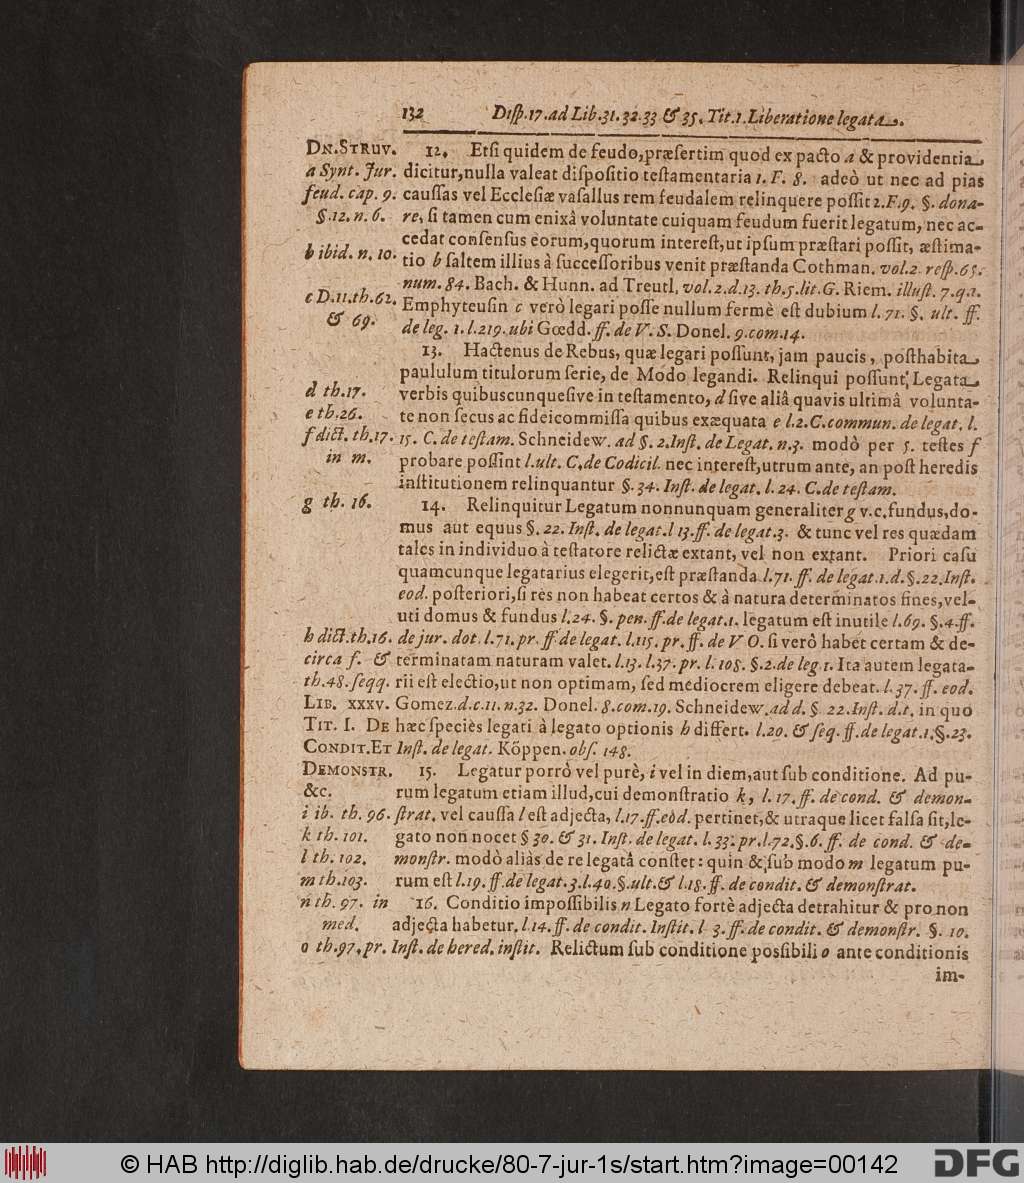 132 Disp. 17. ad Lib. 31. 32. 33 & 35. Tit. 1. Liberatione legata.
DN. STRUV.
a Synt. Jur.
feud. cap. 9.
§. 12. n. 6.
b ibid. n. 10.
c D. 11. th. 62.
& 69.
12. Etsi quidem de feudo, præsertim quod ex pacto a & providentia,
dicitur, nulla valeat dispositio testamentaria 1. F. 8. adeò ut nec ad pias
caussas vel Ecclesiæ vasallus rem feudalem relinquere possit 2. F. 9. §. dona-
re, si tamen cum enixâ voluntate cuiquam feudum fuerit legatum, nec ac-
cedat consensus eorum, quorum interest, ut ipsum præstari possit, æstima-
tio b saltem illius à successoribus venit præstanda Cothman. vol. 2. resp. 65.
num. 84. Bach. & Hunn. ad Treutl. vol. 2. d. 13. th. 5. lit. G. Riem. illust. 7. q. 2.
Emphyteusin c verò legari posse nullum fermè est dubium l. 71. §. ult. ff.
de leg. 1. l. 219. ubi Gœdd. ff. de V. S. Donel. 9. com. 14.
d th. 17.
e th. 26.
f dict. th. 17.
in m.
13. Hactenus de Rebus, quæ legari possunt, jam paucis, posthabita
paululum titulorum serie, de Modo legandi. Relinqui possunt Legata
verbis quibuscunque sive in testamento, d sive aliâ quavis ultimâ volunta-
te non secus ac fideicommissa quibus exæquata e l. 2. C. commun. de legat. l.
15. C. de testam. Schneidew. ad §. 2. Inst. de Legat. n. 3. modò per 5. testes f
probare possint l. ult. C. de Codicil. nec interest, utrum ante, an post heredis
institutionem relinquantur §. 34. Inst. de legat. l. 24. C. de testam.
g th. 16.
14. Relinquitur Legatum nonnunquam generaliter g v. c. fundus, do-
mus aut equus §. 22. Inst. de legat. l 13. ff. de legat. 3. & tunc vel res quædam
tales in individuo à testatore relictæ extant, vel non extant. Priori casu
quamcunque legatarius elegerit, est præstanda l. 71. ff. de legat. 1. d. §. 22. Inst.
eod. posteriori, si res non habeat certos & à natura determinatos fines, vel-
uti domus & fundus l. 24. §. pen. ff. de legat. 1. legatum est inutile l. 69. §. 4. ff.
h dict. th. 16.
circa f. &
th. 48. seqq.
LIB. XXXV.
TIT. I. DE
CONDIT. ET
DEMONSTR.
&c.
de jur. dot. l. 71. pr. ff de legat. l. 115. pr. ff. de V O. si verò habet certam & de-
terminatam naturam valet. l. 13. l. 37. pr. l. 108. §. 2. de leg 1. Ita autem legata-
rii est electio, ut non optimam, sed mediocrem eligere debeat. l. 37. ff. eod.
Gomez. d. c. 11. n. 32. Donel. 8. com. 19. Schneidew. ad d. §. 22. Inst. d. t. in quo
hæc speciès legati à legato optionis h differt. l. 20. & seq. ff. de legat. 1. §. 23.
Inst. de legat. Köppen. obs. 148.
15. Legatur porrò vel purè, i vel in diem, aut sub conditione. Ad pu-
rum legatum etiam illud, cui demonstratio k, l. 17. ff. de cond. & demon-
i ib. th. 96.
k th. 101.
l th. 102.
m th. 103.
strat. vel caussa l est adjecta, l. 17. ff. eod. pertinet, & utraque licet falsa sit, le-
gato non nocet § 30. & 31. Inst. de legat. l. 33. pr. l. 72. §. 6. ff. de cond. & de-
monstr. modò aliàs de re legatâ constet: quin & sub modo m legatum pu-
rum est l. 19. ff. de legat. 3. l. 40. §. ult. & l. 18. ff. de condit. & demonstrat.
n th. 97. in
med.
o th. 97. pr.
16. Conditio impossibilis n Legato fortè adjecta detrahitur & pro non
adjecta habetur. l 14. ff. de condit. Instit. l 3. ff. de condit. & demonstr. §. 10.
Inst. de hered. instit. Relictum sub conditione possibili o ante conditionis
im-
© HAB http://diglib.hab.de/drucke/80-7-jur-1s/start.htm?image=00142
DFG